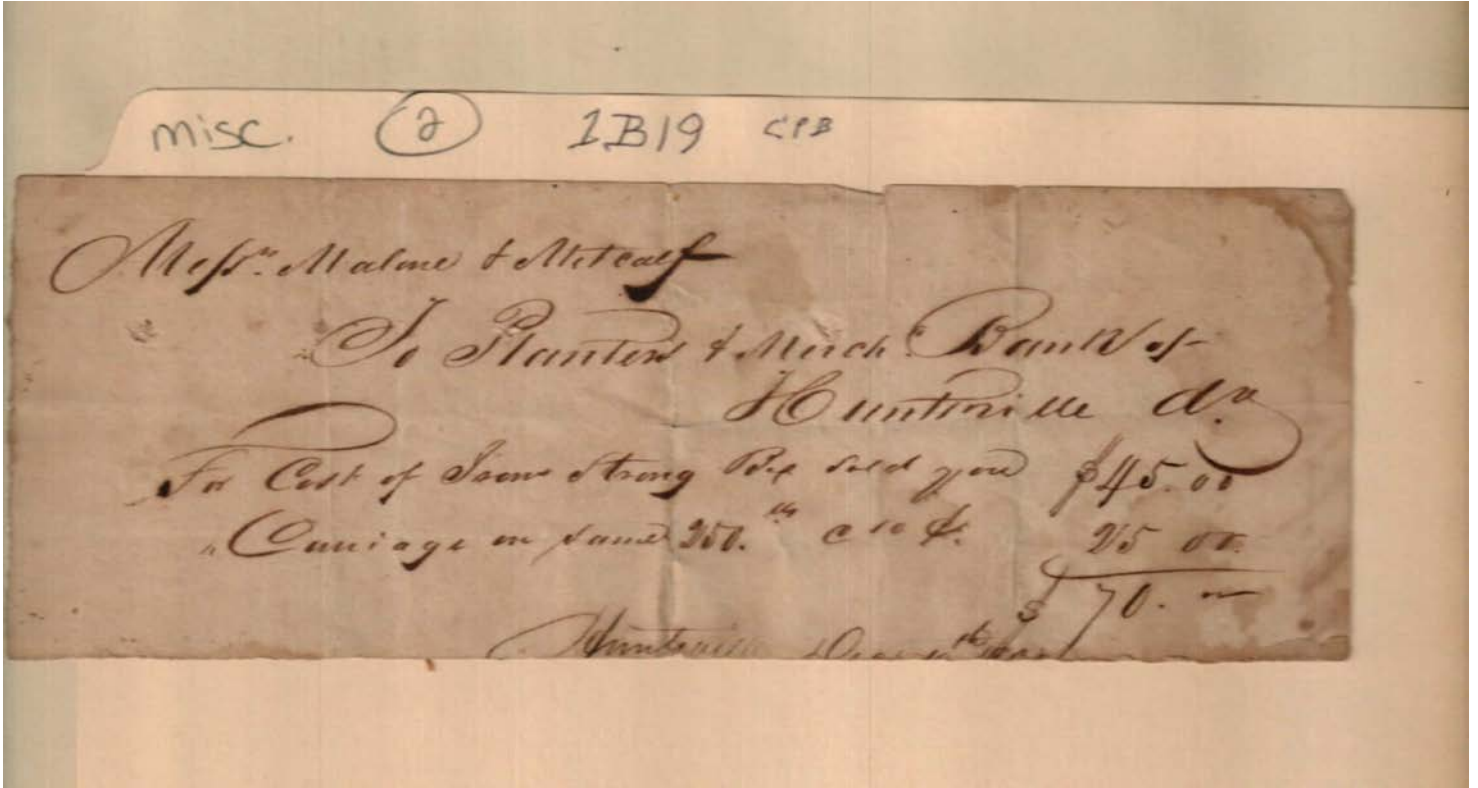 misc. 2 1B19 CPB
Messrs. Malone & Metcalf
To Planters & Merch.s Bank of
Huntsville Dr
For Cost of Iron Strong Box sold you $45.00
" Carriage on same 250.lb @ 10 ¢. 25 00
$ 70. 00
Huntsville